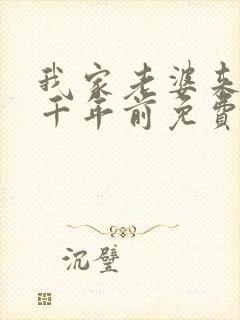 我家老婆来
千年前免费
沉璧